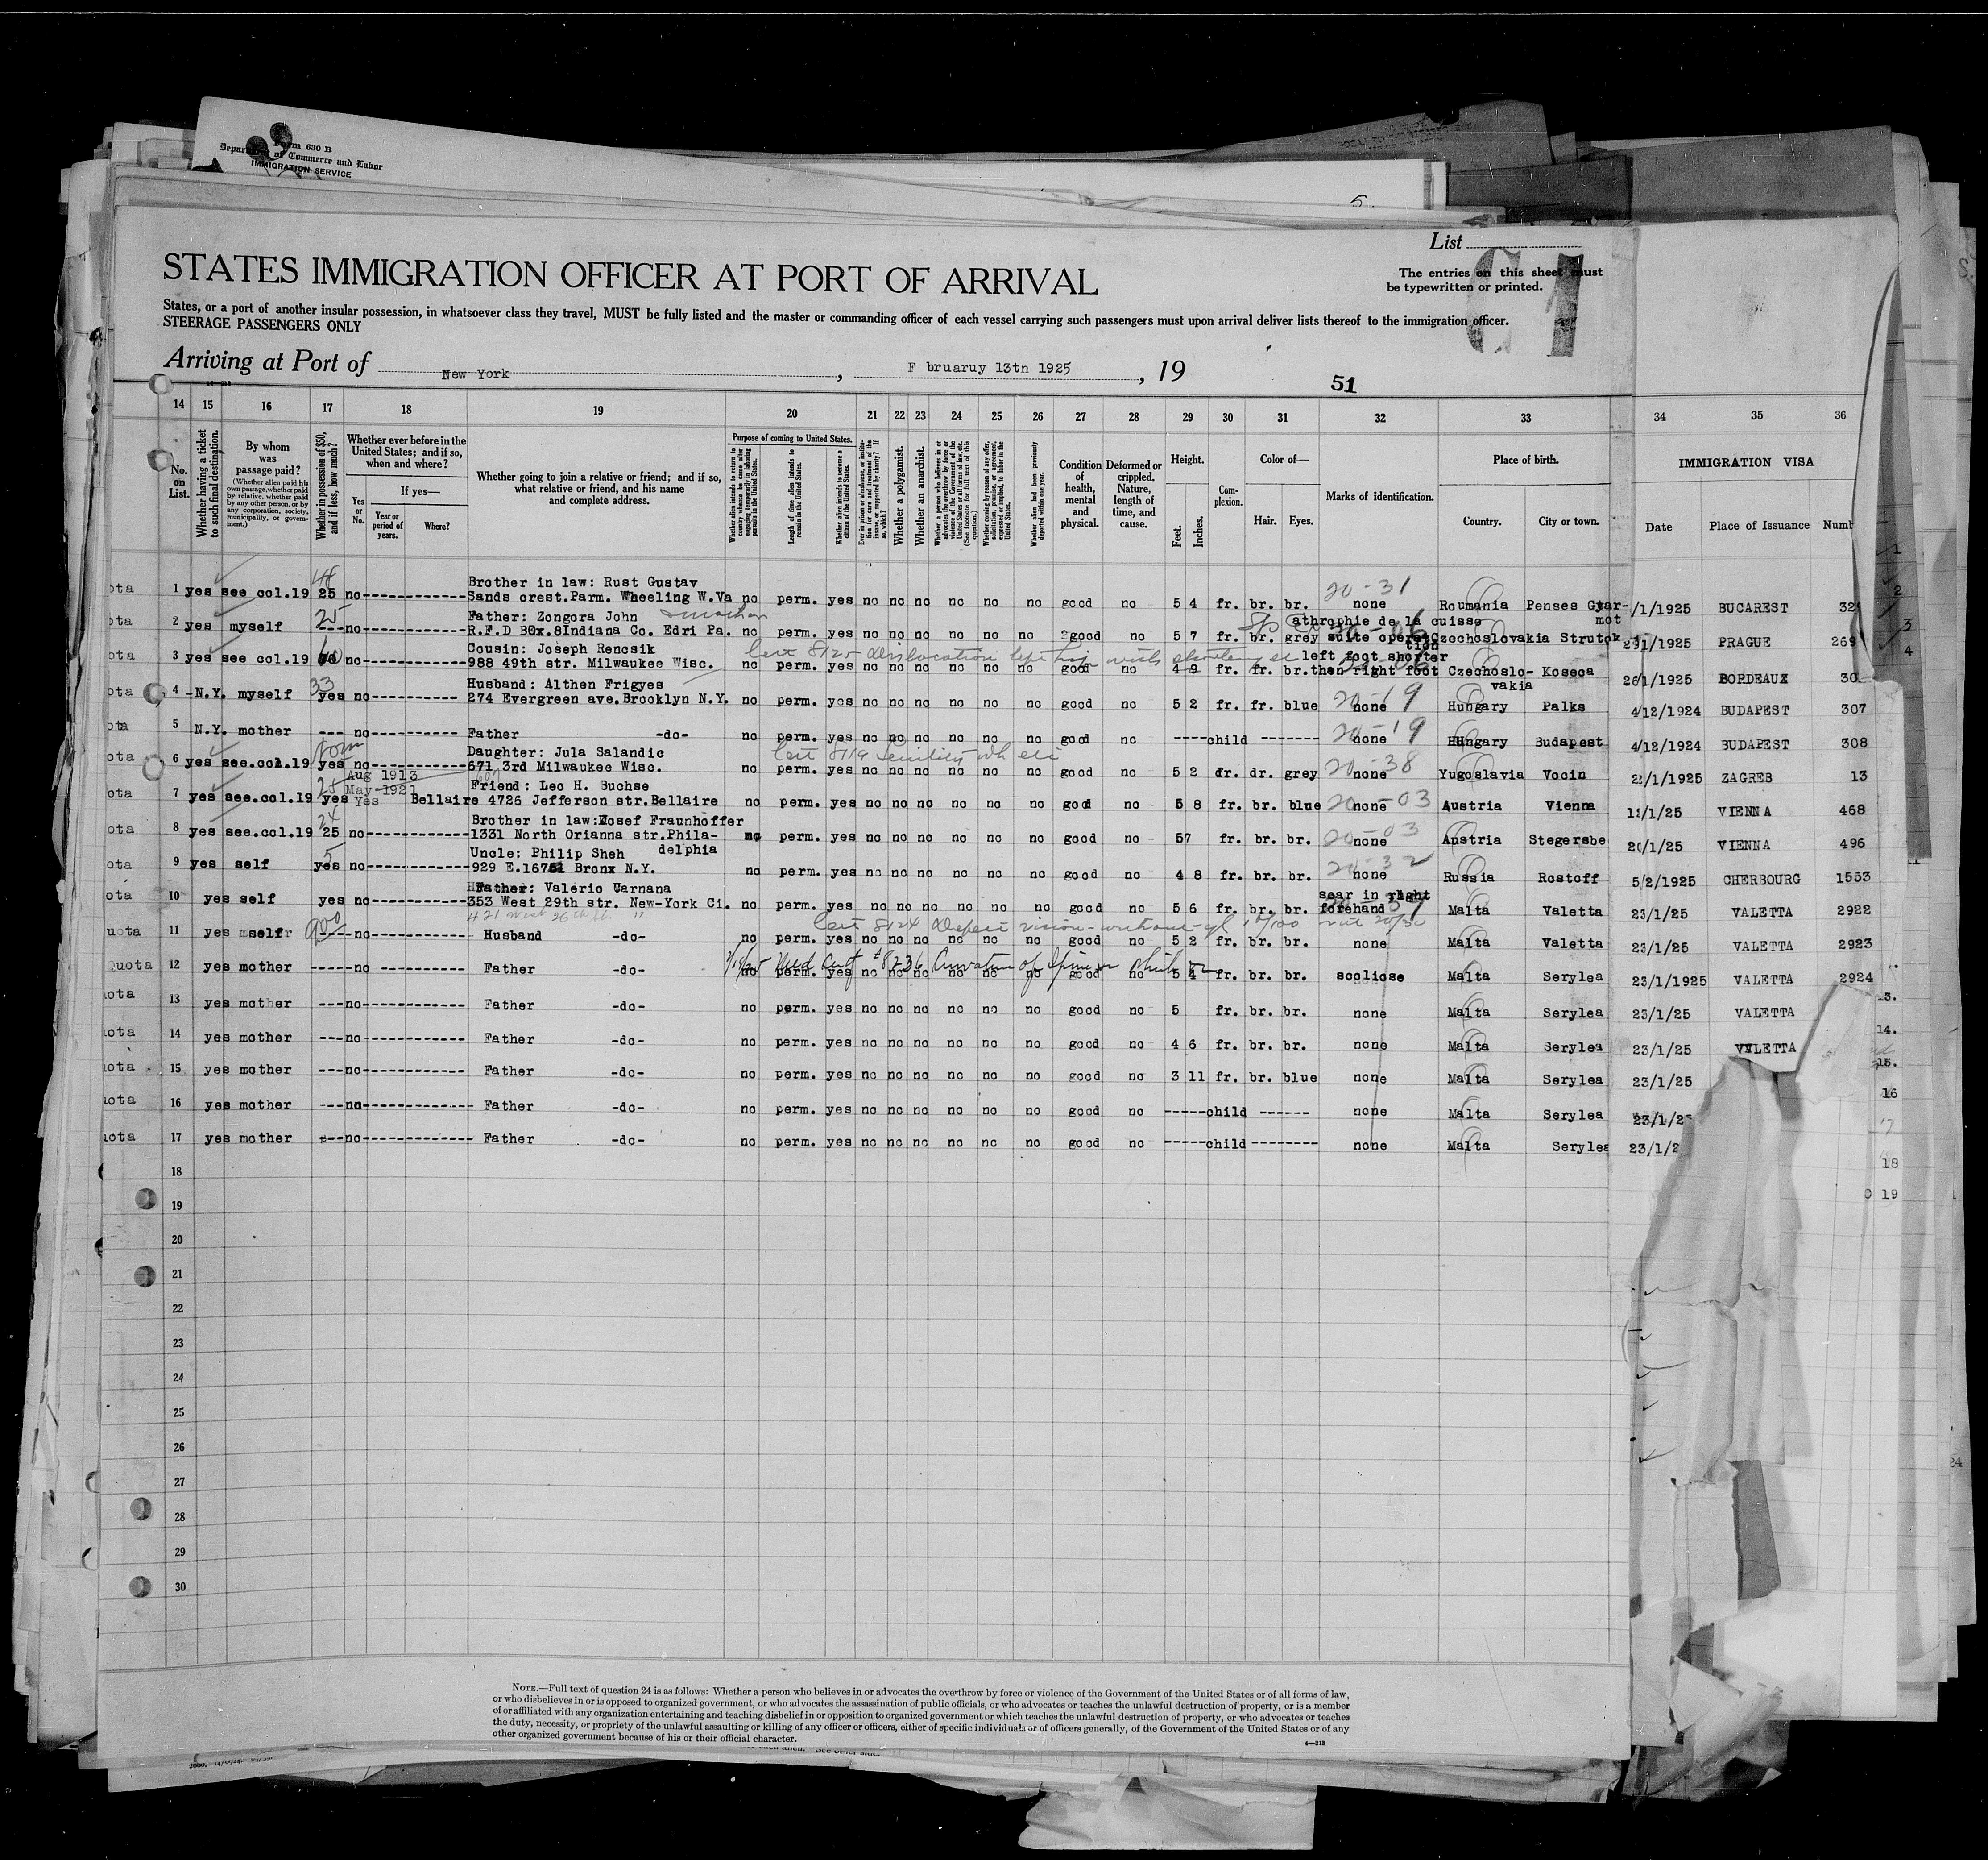 Form 630 B
Department of Commerce and Labor
IMMIGRATION SERVICE
5.
List
STATES IMMIGRATION OFFICER AT PORT OF ARRIVAL
The entries on this sheet must
be typewritten or printed.
States, or a port of another insular possession, in whatsoever class they travel, MUST be fully listed and the master or commanding officer of each vessel carrying such passengers must upon arrival deliver lists thereof to the immigration officer.
STEERAGE PASSENGERS ONLY
Arriving at Port of New York, F bruaruy 13tn 1925, 19
51
14 15 16 17 18 19 20 21 22 23 24 25 26 27 28 29 30 31 32 33 34 35 36
No. on List.
Whether having a ticket to such final destination.
By whom was passage paid?
(Whether alien paid his own passage, whether paid by relative, whether paid by any other person, or by any corporation, society, municipality, or government.)
Whether in possession of $50, and if less, how much?
Whether ever before in the United States; and if so, when and where?
Yes or No.
If yes—
Year or period of years.
Where?
Whether going to join a relative or friend; and if so, what relative or friend, and his name and complete address.
Purpose of coming to United States.
Length of time alien intends to remain in the United States.
Whether alien intends to become a citizen of the United States.
Whether a polygamist.
Whether an anarchist.
Whether alien had been previously deported within one year.
Condition of health, mental and physical.
Deformed or crippled. Nature, length of time, and cause.
Height.
Feet.
Inches.
Complexion.
Color of—
Hair.
Eyes.
Marks of identification.
Place of birth.
Country.
City or town.
IMMIGRATION VISA
Date
Place of Issuance
Numb
Brother in law: Rust Gustav
ota 1 yes see col.19 25 no------------- Sands crest.Parm. Wheeling W.Va no perm. yes no no no no no no good no 5 4 fr. br. br. none Roumania Penses Gyar-mot /1/1925 BUCAREST 32
Father: Zongora John
athrophie de la cuisse
ota 2 yes myself ---no------------- R.F.D B0x.8Indiana Co. Edri Pa. no perm. yes no no no no no no good no 5 7 fr. br. grey suite operation Czechoslovakia Strutok 291/1925 PRAGUE 269
Cousin: Joseph Rencsik
left foot shorter
ota 3 yes see col.19 no------------- 988 49th str. Milwaukee Wisc. no perm. yes no no no no no no good no 4 9 fr. fr. br. then right foot Czechoslo-vakia Koseca 261/1925 BORDEAUX 30
Husband: Althen Frigyes
ota 4 -N.Y. myself 33 yes no----------- 274 Evergreen ave.Brooklyn N.Y. no perm. yes no no no no no no good no 5 2 fr. fr. blue none Hungary Palks 4/12/1924 BUDAPEST 307
ota 5 N.Y. mother --- no----------- Father -do- no perm. yes no no no no no no good no ----child ------- none Hungary Budapest 4/12/1924 BUDAPEST 308
Daughter: Jula Salandic
ota 6 yes see.col.19 yes no------------- 671 3rd Milwaukee Wisc. no perm. yes no no no no no no good no 5 2 dr. dr. grey none Yugoslavia Vocin 2/1/1925 ZAGREB 13
Aug 1913
May-1921
Friend: Leo H. Buchse
ota 7 yes see.col.19 yes Yes Bellaire 4726 Jefferson str.Bellaire no perm. yes no no no no no no good no 5 8 fr. br. blue none Austria Vienna 12/1/25 VIENNA 468
Brother in law: Josef Fraunhoffer
ota 8 yes see.col.19 25 no------------- 1331 North Orianna str.Phila-delphia no perm. yes no no no no no no good no 57 fr. br. br. none Austria Stegersbe 20/1/25 VIENNA 496
Uncle: Philip Sheh
ota 9 yes self yes no------------- 929 E.167 Bronx N.Y. no perm. yes no no no no no no good no 4 8 fr. br. br. none Russia Rostoff 5/2/1925 CHERBOURG 1553
Father: Valerio Carnana
scar in right
ota 10 yes self yes no------------- 353 West 29th str. New-York Ci. no perm. yes no no no no no no good no 5 6 fr. br. br. forehand Malta Valetta 23/1/25 VALETTA 2922
421 West 26th St. "
uota 11 yes self no------------- Husband -do- no perm. yes no no no no no no good no 5 2 fr. br. br. none Malta Valetta 23/1/25 VALETTA 2923
Med Cert #8236 Curvation of Spine
Quota 12 yes mother -----no ----------- Father -do- no perm. yes no no no no no no good no 5 4 fr. br. br. scoliose Malta Serylea 23/1/1925 VALETTA 2924
uota 13 yes mother ---no------------- Father -do- no perm. yes no no no no no no good no 5 fr. br. br. none Malta Serylea 23/1/25 VALETTA
uota 14 yes mother ---no------------- Father -do- no perm. yes no no no no no no good no 4 6 fr. br. br. none Malta Serylea 23/1/25 VALETTA
uota 15 yes mother ---no------------- Father -do- no perm. yes no no no no no no good no 3 11 fr. br. blue none Malta Serylea 23/1/25
uota 16 yes mother ---no------------- Father -do- no perm. yes no no no no no no good no -----child ------ none Malta Serylea 23/1/2
uota 17 yes mother ---no------------- Father -do- no perm. yes no no no no no no good no -----child -------- none Malta Serylea 23/1/2
18
19
20
21
22
23
24
25
26
27
28
29
30
NOTE.—Full text of question 24 is as follows: Whether a person who believes in or advocates the overthrow by force or violence of the Government of the United States or of all forms of law,
or who disbelieves in or is opposed to organized government, or who advocates the assassination of public officials, or who advocates or teaches the unlawful destruction of property, or is a member
of or affiliated with any organization entertaining and teaching disbelief in or opposition to organized government or which teaches the unlawful destruction of property, or who advocates or teaches
the duty, necessity, or propriety of the unlawful assaulting or killing of any officer or officers, either of specific individuals or of officers generally, of the Government of the United States or of any
other organized government because of his or their official character.